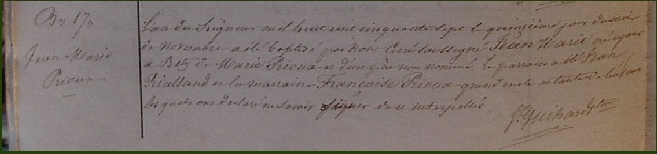 Bn 17e
Jean-Marie
Prieux
L'an du Seigneur mil huit cent cinquante sept le quinzième jour du mois
de Novembre a été baptisé par Nous Curé soussigné Jean Marie né ce jour
à Betz de Marie Prieux et d'un père non nommé. Le parrain a été Jean
Rialland et la marraine Françoise Prieux grand mère de l'enfant
lesquels ont déclaré ne savoir signer de ce interpellés
Guihard